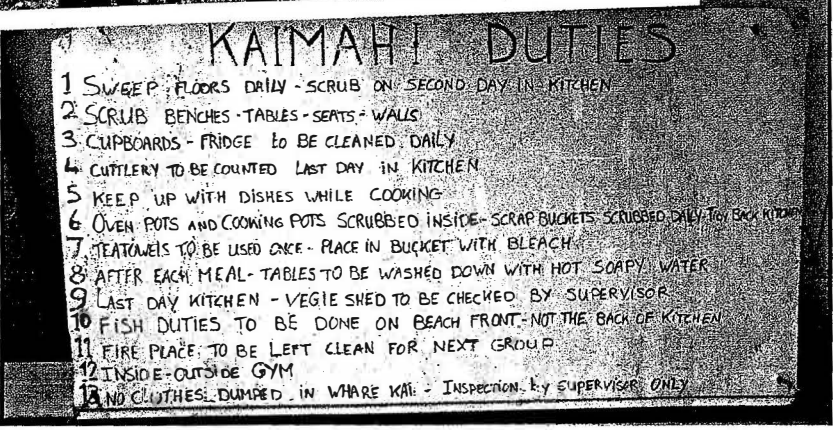 KAIMAHI DUTIES
1 SWEEP FLOORS DAILY - SCRUB ON SECOND DAY IN KITCHEN
2 SCRUB BENCHES - TABLES - SEATS - WALLS
3 CUPBOARDS - FRIDGE to BE CLEANED DAILY
4 CUTTLERY TO BE COUNTED LAST DAY IN KITCHEN
5 KEEP UP WITH DISHES WHILE COOKING
6 OVEN POTS AND COOKING POTS SCRUBBED INSIDE - SCRAP BUCKETS SCRUBBED DAILY - TIDY BACK KITCHEN
7 TEATOWELS TO BE USED ONCE - PLACE IN BUCKET WITH BLEACH
8 AFTER EACH MEAL - TABLES TO BE WASHED DOWN WITH HOT SOAPY WATER
9 LAST DAY KITCHEN - VEGIE SHED TO BE CHECKED BY SUPERVISOR
10 FISH DUTIES TO BE DONE ON BEACH FRONT - NOT THE BACK OF KITCHEN
11 FIRE PLACE TO BE LEFT CLEAN FOR NEXT GROUP
12 INSIDE - OUTSIDE GYM
13 NO CLOTHES DUMPED IN WHARE KAI - INSPECTION by SUPERVISOR ONLY